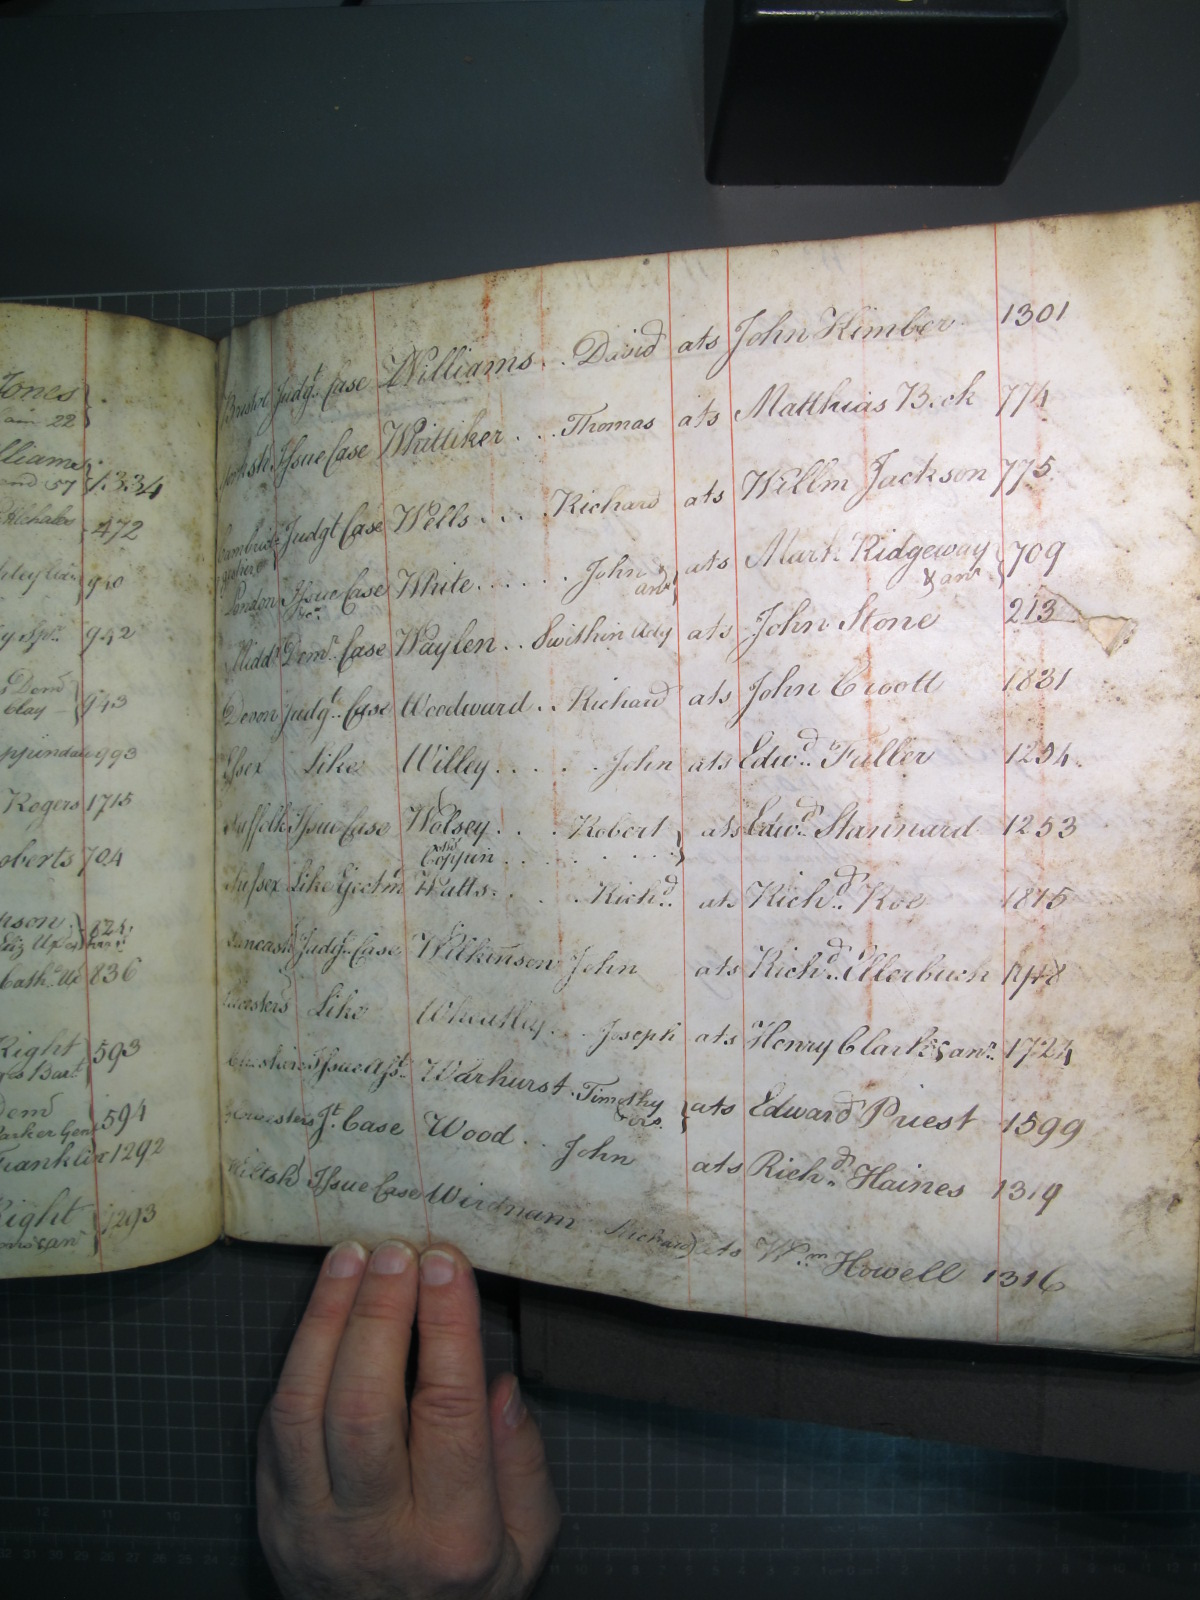 Jones
ain 22
lliams
and 57 1334
Nicholas 472
hley 940
y Sp.. 942
s Dem^d
Clay 943
ppindale 993
Rogers 1715
oberts 704
pson
Eliz Ux
Cath. Ux 836
Right 593
ges Bart
Dem^d 594
Parker Gen
Franklin 1292
Right 1293
Bristol Judg^t. Case Williams . . David ats John Kimber 1301
Yorksh Issue Case Whittiker . . . Thomas ats Matthias Beck 774
Cambridgeshire Judgt Case Wells . . . . Richard ats Willm Jackson 775
London Issue Case White . . . . . . John & an^r ats Mark Ridgeway & an^r 709
Midd^x Dem^r. Case Waylen . . Swithin Ady ats John Stone 213
Devon Judg^t. Case Woodward . . Richard ats John Croott 1831
Essex Like Willey . . . . . John ats Edw^d. Fuller 1254
Suffolk Issue Case Wolsey . . . Robert ats Edw^d. Stannard 1253
Coppin . . . . . . .
Sussex Like Eject^m Watts . . . . Rich^d. ats Rich^d. Roe 1815
Lancash^r Judg^t. Case Wilkinson John ats Rich^d. Ellerbuch 1748
Like Wheatley . . Joseph ats Henry Clark & an^r. 1724
Issue Ass^t. Warhurst . Timothy & ors. ats Edward Priest 1599
J^t. Case Wood . . John ats Rich^d. Haines 1319
Wiltsh Issue Case Wirdnam Richard ats W^m. Howell 1316